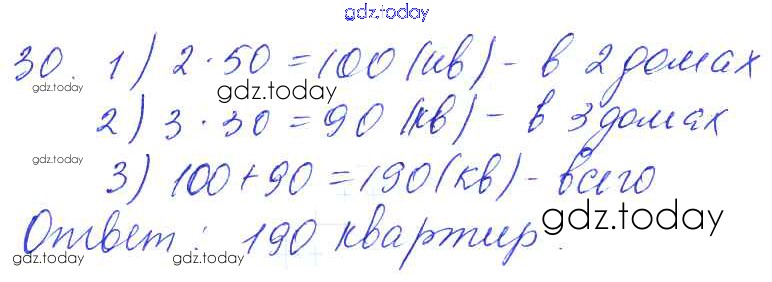 gdz.today
30. 1) 2·50=100 (кв) - в 2 домах
gdz.today gdz.today
2) 3·30=90 (кв) - в 3 домах
gdz.today
3) 100+90=190 (кв) - всего
gdz.today
Ответ: 190 квартир.
gdz.today gdz.today gdz.today